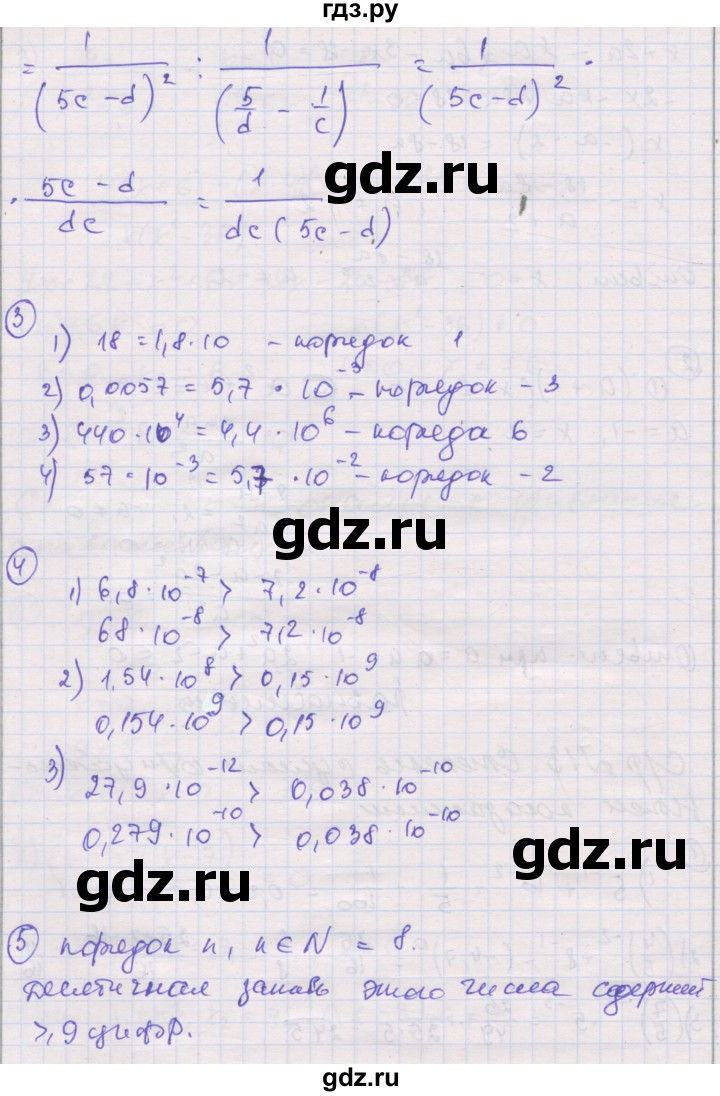 гдз.ру
= 1/(5c - d)² : 1/(5/d - 1/c) = 1/(5c - d)² ·
· (5c - d)/dc = 1/dc(5c - d)
3
1) 18 = 1,8 · 10 - порядок 1
2) 0,0057 = 5,7 · 10⁻³ - порядок - 3
3) 440 · 10⁴ = 4,4 · 10⁶ - порядок 6
4) 57 · 10⁻³ = 5,7 · 10⁻² - порядок - 2
gdz.ru
4
1) 6,8 · 10⁻⁷ > 7,2 · 10⁻⁸
68 · 10⁻⁸ > 7,2 · 10⁻⁸
2) 1,54 · 10⁸ > 0,15 · 10⁹
0,154 · 10⁹ > 0,15 · 10⁹
gdz.ru
3) 27,9 · 10⁻¹² > 0,038 · 10⁻¹⁰
0,279 · 10⁻¹⁰ > 0,038 · 10⁻¹⁰
gdz.ru
gdz.ru
5 порядок n, n ∈ N = 8.
Десятичная запись этого числа содержит
⩾ 9 цифр.
gdz.ru
gdz.ru
gdz.ru